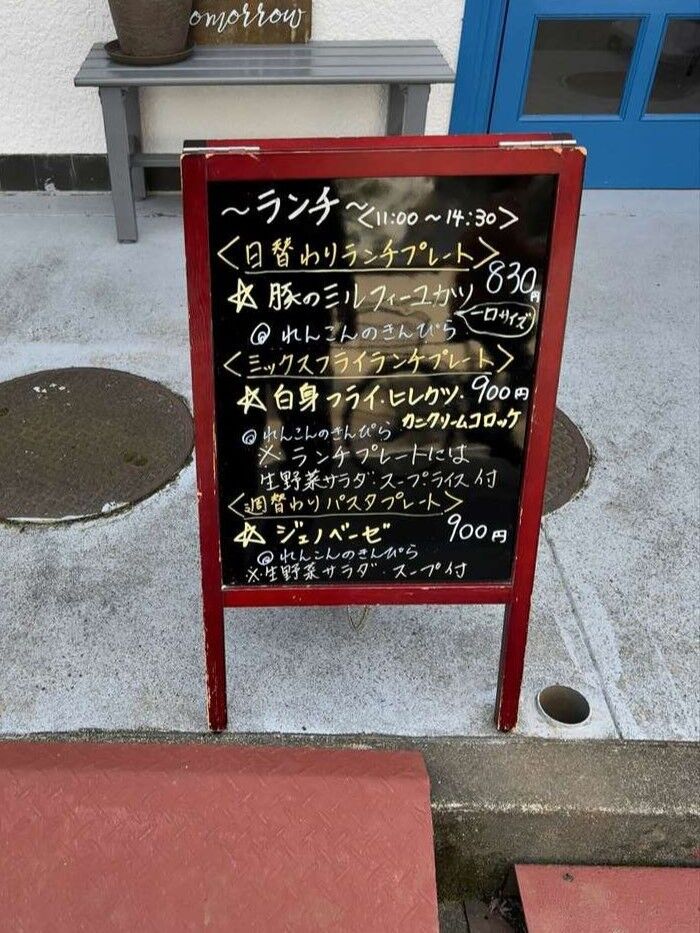 omorrow
～ランチ～<11:00～14:30>
<日替わりランチプレート>
☆豚のミルフィーユカツ 830円
一口サイズ
@れんこんのきんぴら
<ミックスフライランチプレート>
☆白身フライ・ヒレカツ・ 900円
カニクリームコロッケ
@れんこんのきんぴら
※ランチプレートには
生野菜サラダ・スープ・ライス付
<週替わりパスタプレート>
☆ジェノベーゼ 900円
@れんこんのきんぴら
※生野菜サラダ・スープ付